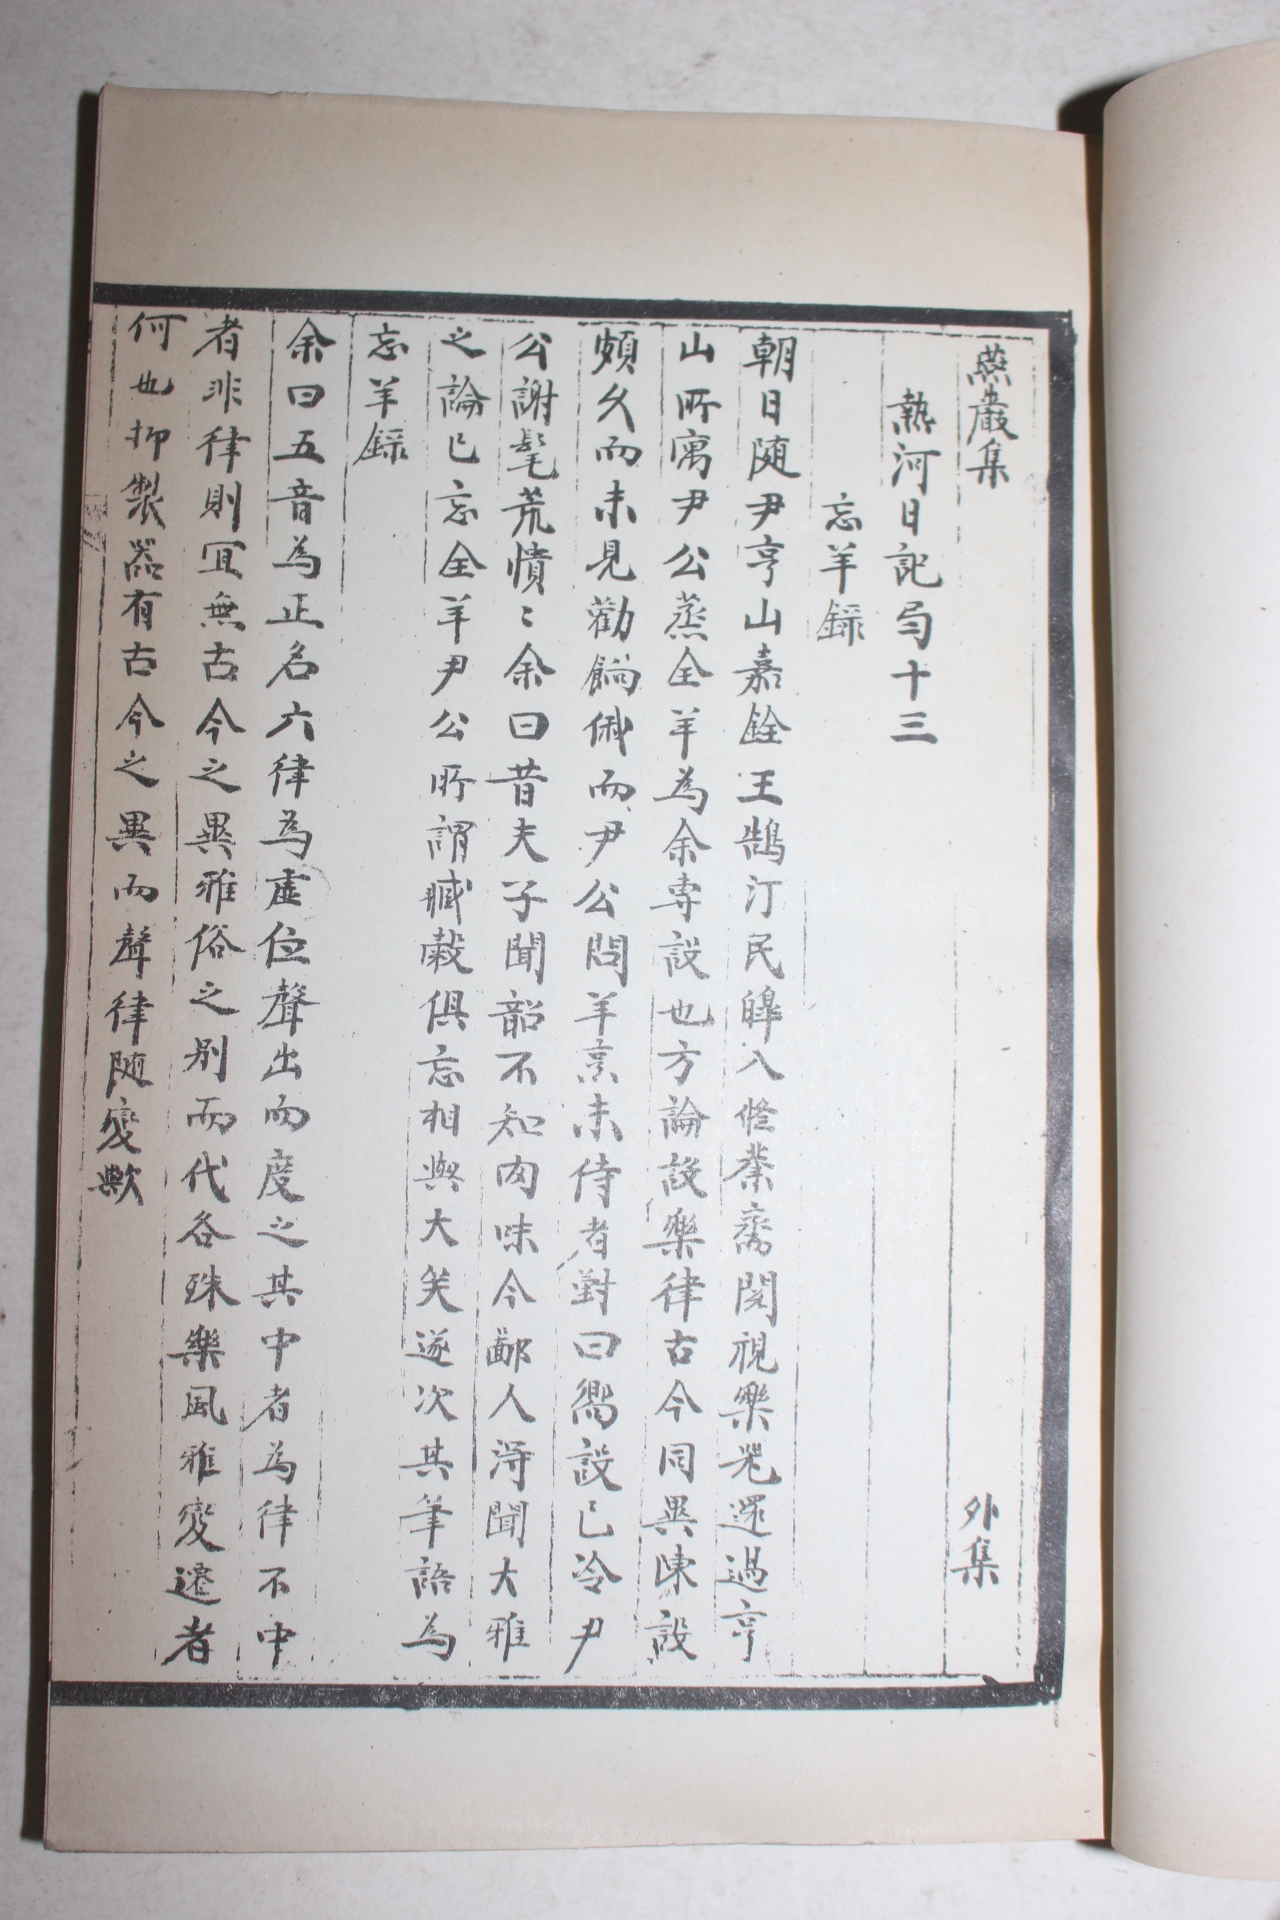 燕巖集　外集
熱河日記局十三
忘羊録
朝日随尹亨山嘉銓王鵠汀民皡入修業齋閱視樂器還過亨
山所寓尹公蒸全羊為余専設也方論說樂律古今同異陳設
頗久而未見勸餉俄而尹公問羊烹未侍者對曰嚮設已冷尹
公謝髦荒憒〻余曰昔夫子聞韶不知肉味今鄙人淂聞大雅
之論已忘全羊尹公所謂臧穀俱忘相與大笑遂次其筆語為
忘羊録
余曰五音為正名六律為虛位聲出而度之其中者為律不中
者非律則冝無古今之異雅俗之别而代各殊樂風雅變遷者
何也抑製器有古今之異而聲律随變歟